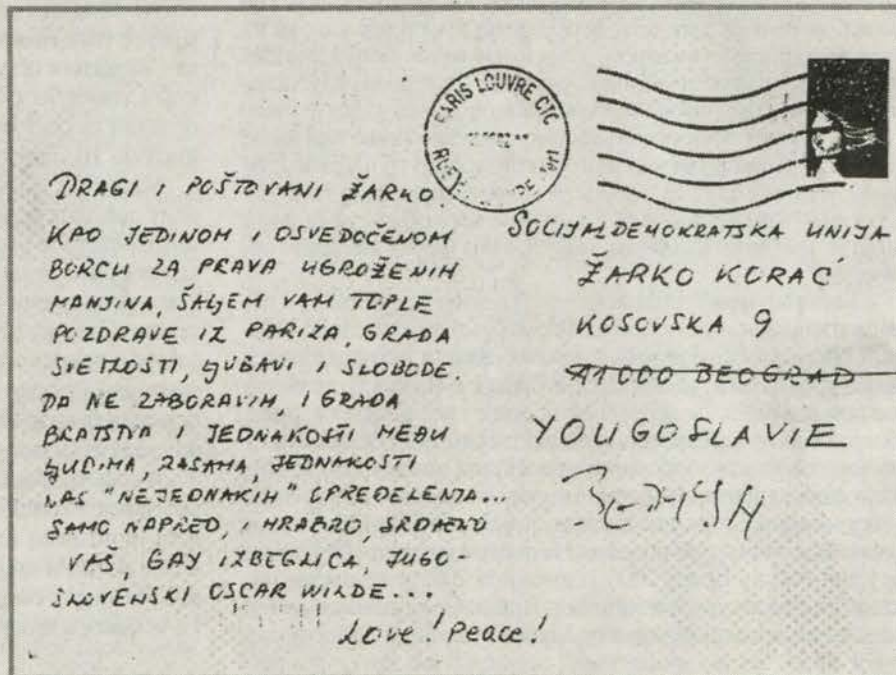 PARIS LOUVRE CTC
DRAGI I POŠTOVANI ŽARKO.
KAO JEDINOM I OSVEDOČENOM
BORCU ZA PRAVA UGROŽENIH
MANJINA, ŠALJEM VAM TOPLE
POZDRAVE IZ PARIZA, GRADA
SVETLOSTI, LJUBAVI I SLOBODE.
DA NE ZABORAVIM, I GRADA
BRATSTVA I JEDNAKOSTI MEĐU
LJUDIMA, RASAMA, JEDNAKOSTI
NAS "NEJEDNAKIH" OPREDELENJA...
SAMO NAPRED, I HRABRO, SRDAČNO
VAŠ, GAY IZBEGLICA, JUGO-
SLOVENSKI OSCAR WILDE...
Love! Peace!
SOCIJALDEMOKRATSKA UNIJA
ŽARKO KORAĆ
KOSOVSKA 9
11000 BEOGRAD
YOUGOSLAVIE